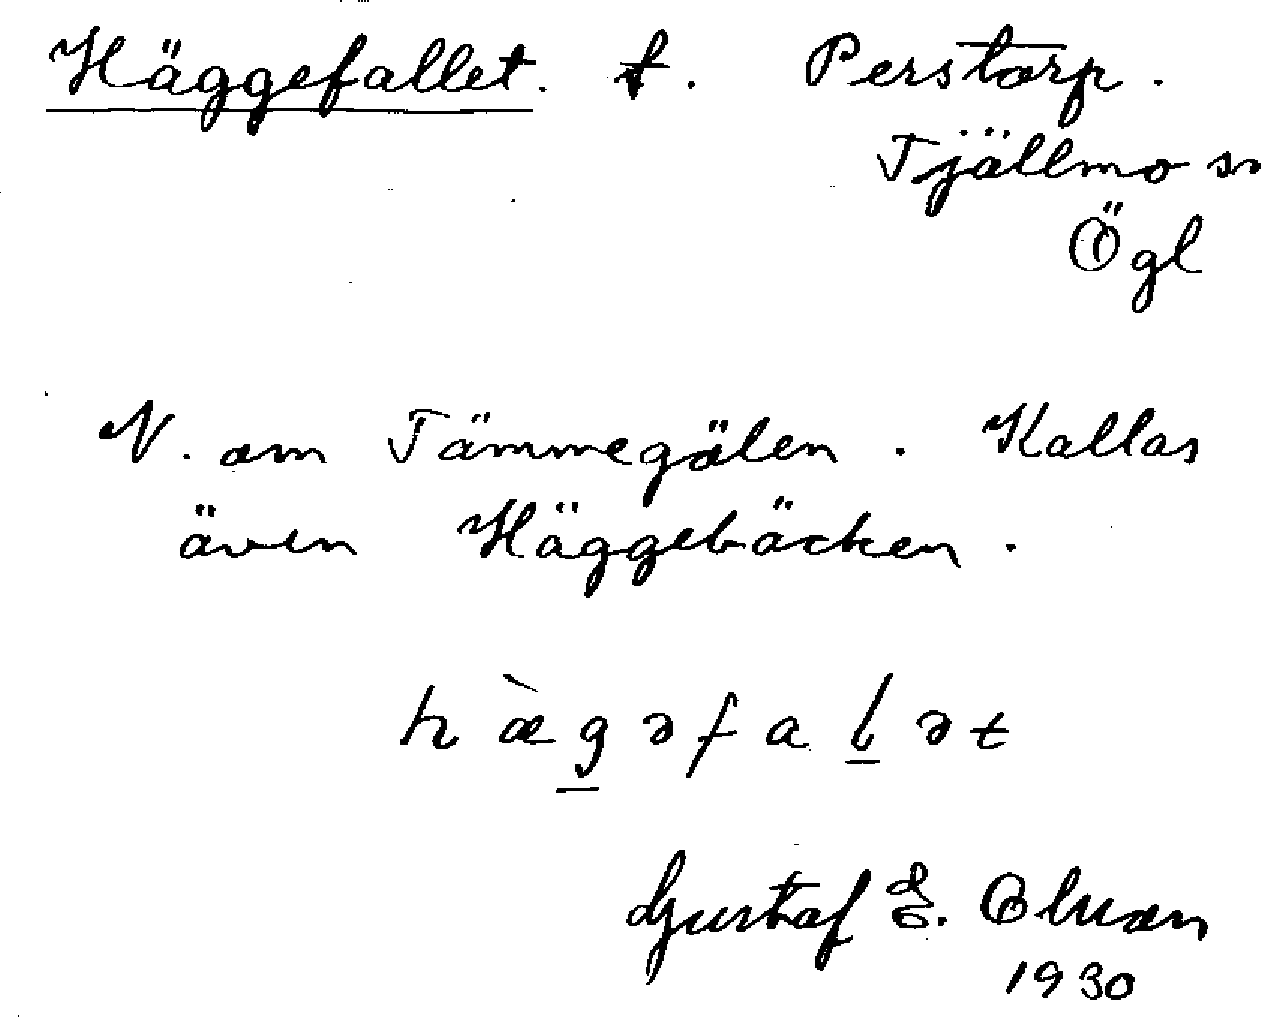 Häggefallet. f. Perstorp.
Tjällmo sn
Ögl
N. om Tämmegölen. Kallas
även Häggebäcken.
hæ̀g̲əfal̲ət
Gustaf E. Olsson
1930